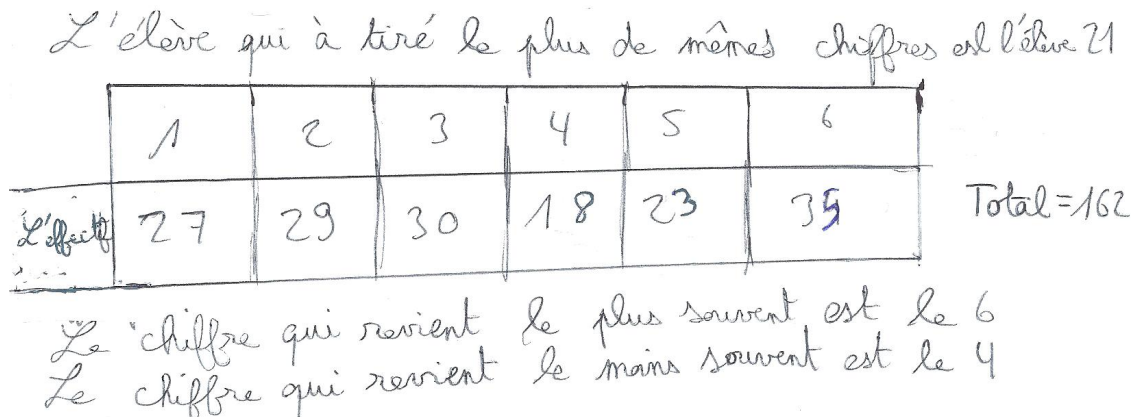 L'élève qui à tiré le plus de mêmes chiffres est l'élève 21
1 2 3 4 5 6
L'effectif 27 29 30 18 23 35 Total=162
Le chiffre qui revient le plus souvent est le 6
Le chiffre qui revient le moins souvent est le 4